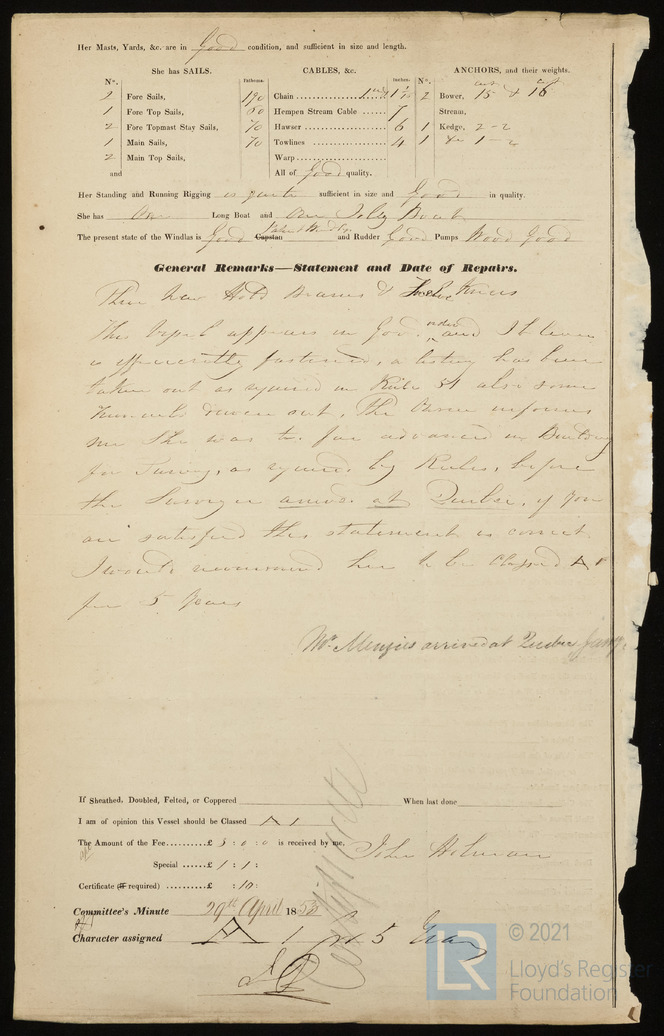 Her Masts, Yards, &c. are in Good condition, and sufficient in size and length.
She has SAILS.
CABLES, &c.
ANCHORS, and their weights.
N°.
Fathoms.
Inches.
N°.
cwt
2 Fore Sails,
190
Chain
2 Bower, 15 & 16
1 Fore Top Sails,
Hempen Stream Cable 7
Stream,
2 Fore Topmast Stay Sails,
70
Hawser 6
1 Kedge, 2 - 2
1 Main Sails,
70
Towlines 4
1
2 Main Top Sails,
Warp
and
All of Good quality.
Her Standing and Running Rigging sufficient in size and Good in quality.
She has One Long Boat and One Jolly Boat
The present state of the Windlas is Good Capstan and Rudder Good Pumps Wood Good
General Remarks—Statement and Date of Repairs.
New Hold Beams & Twelve Knees
This Vessel appears in Good order and I believe
is efficiently fastened, a listing has been
taken out as required in Rule 51 also some
driven out, The Owner informs
me She was too far advanced in Building
for Survey, as required by Rules, before
the Surveyor arrived at Quebec, if you
are satisfied this statement is correct
I would recommend her to be Classed A 1
for 5 Years
Mr. Menzies arrived at Quebec
If Sheathed, Doubled, Felted, or Coppered
When last done
I am of opinion this Vessel should be Classed A 1
The Amount of the Fee £ 5 : 0 : 0 is received by me,
John Holman
Special £ 1 : 1 :
Certificate (if required) £ : 10 :
Certificate
Committee's Minute 29th April 1853
Character assigned A 1 for 5 Years
© 2021
LR
Lloyd's Register
Foundation